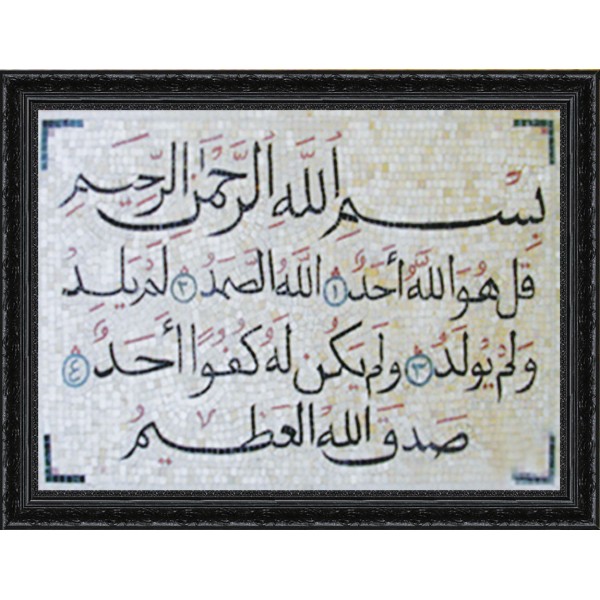 بِسْمِ اللَّهِ الرَّحْمَٰنِ الرَّحِيمِ
قُلْ هُوَ اللَّهُ أَحَدٌ ١ اللَّهُ الصَّمَدُ ٢ لَمْ يَلِدْ
وَلَمْ يُولَدْ ٣ وَلَمْ يَكُن لَّهُ كُفُوًا أَحَدٌ ٤
صَدَقَ اللهُ العَظِيمُ